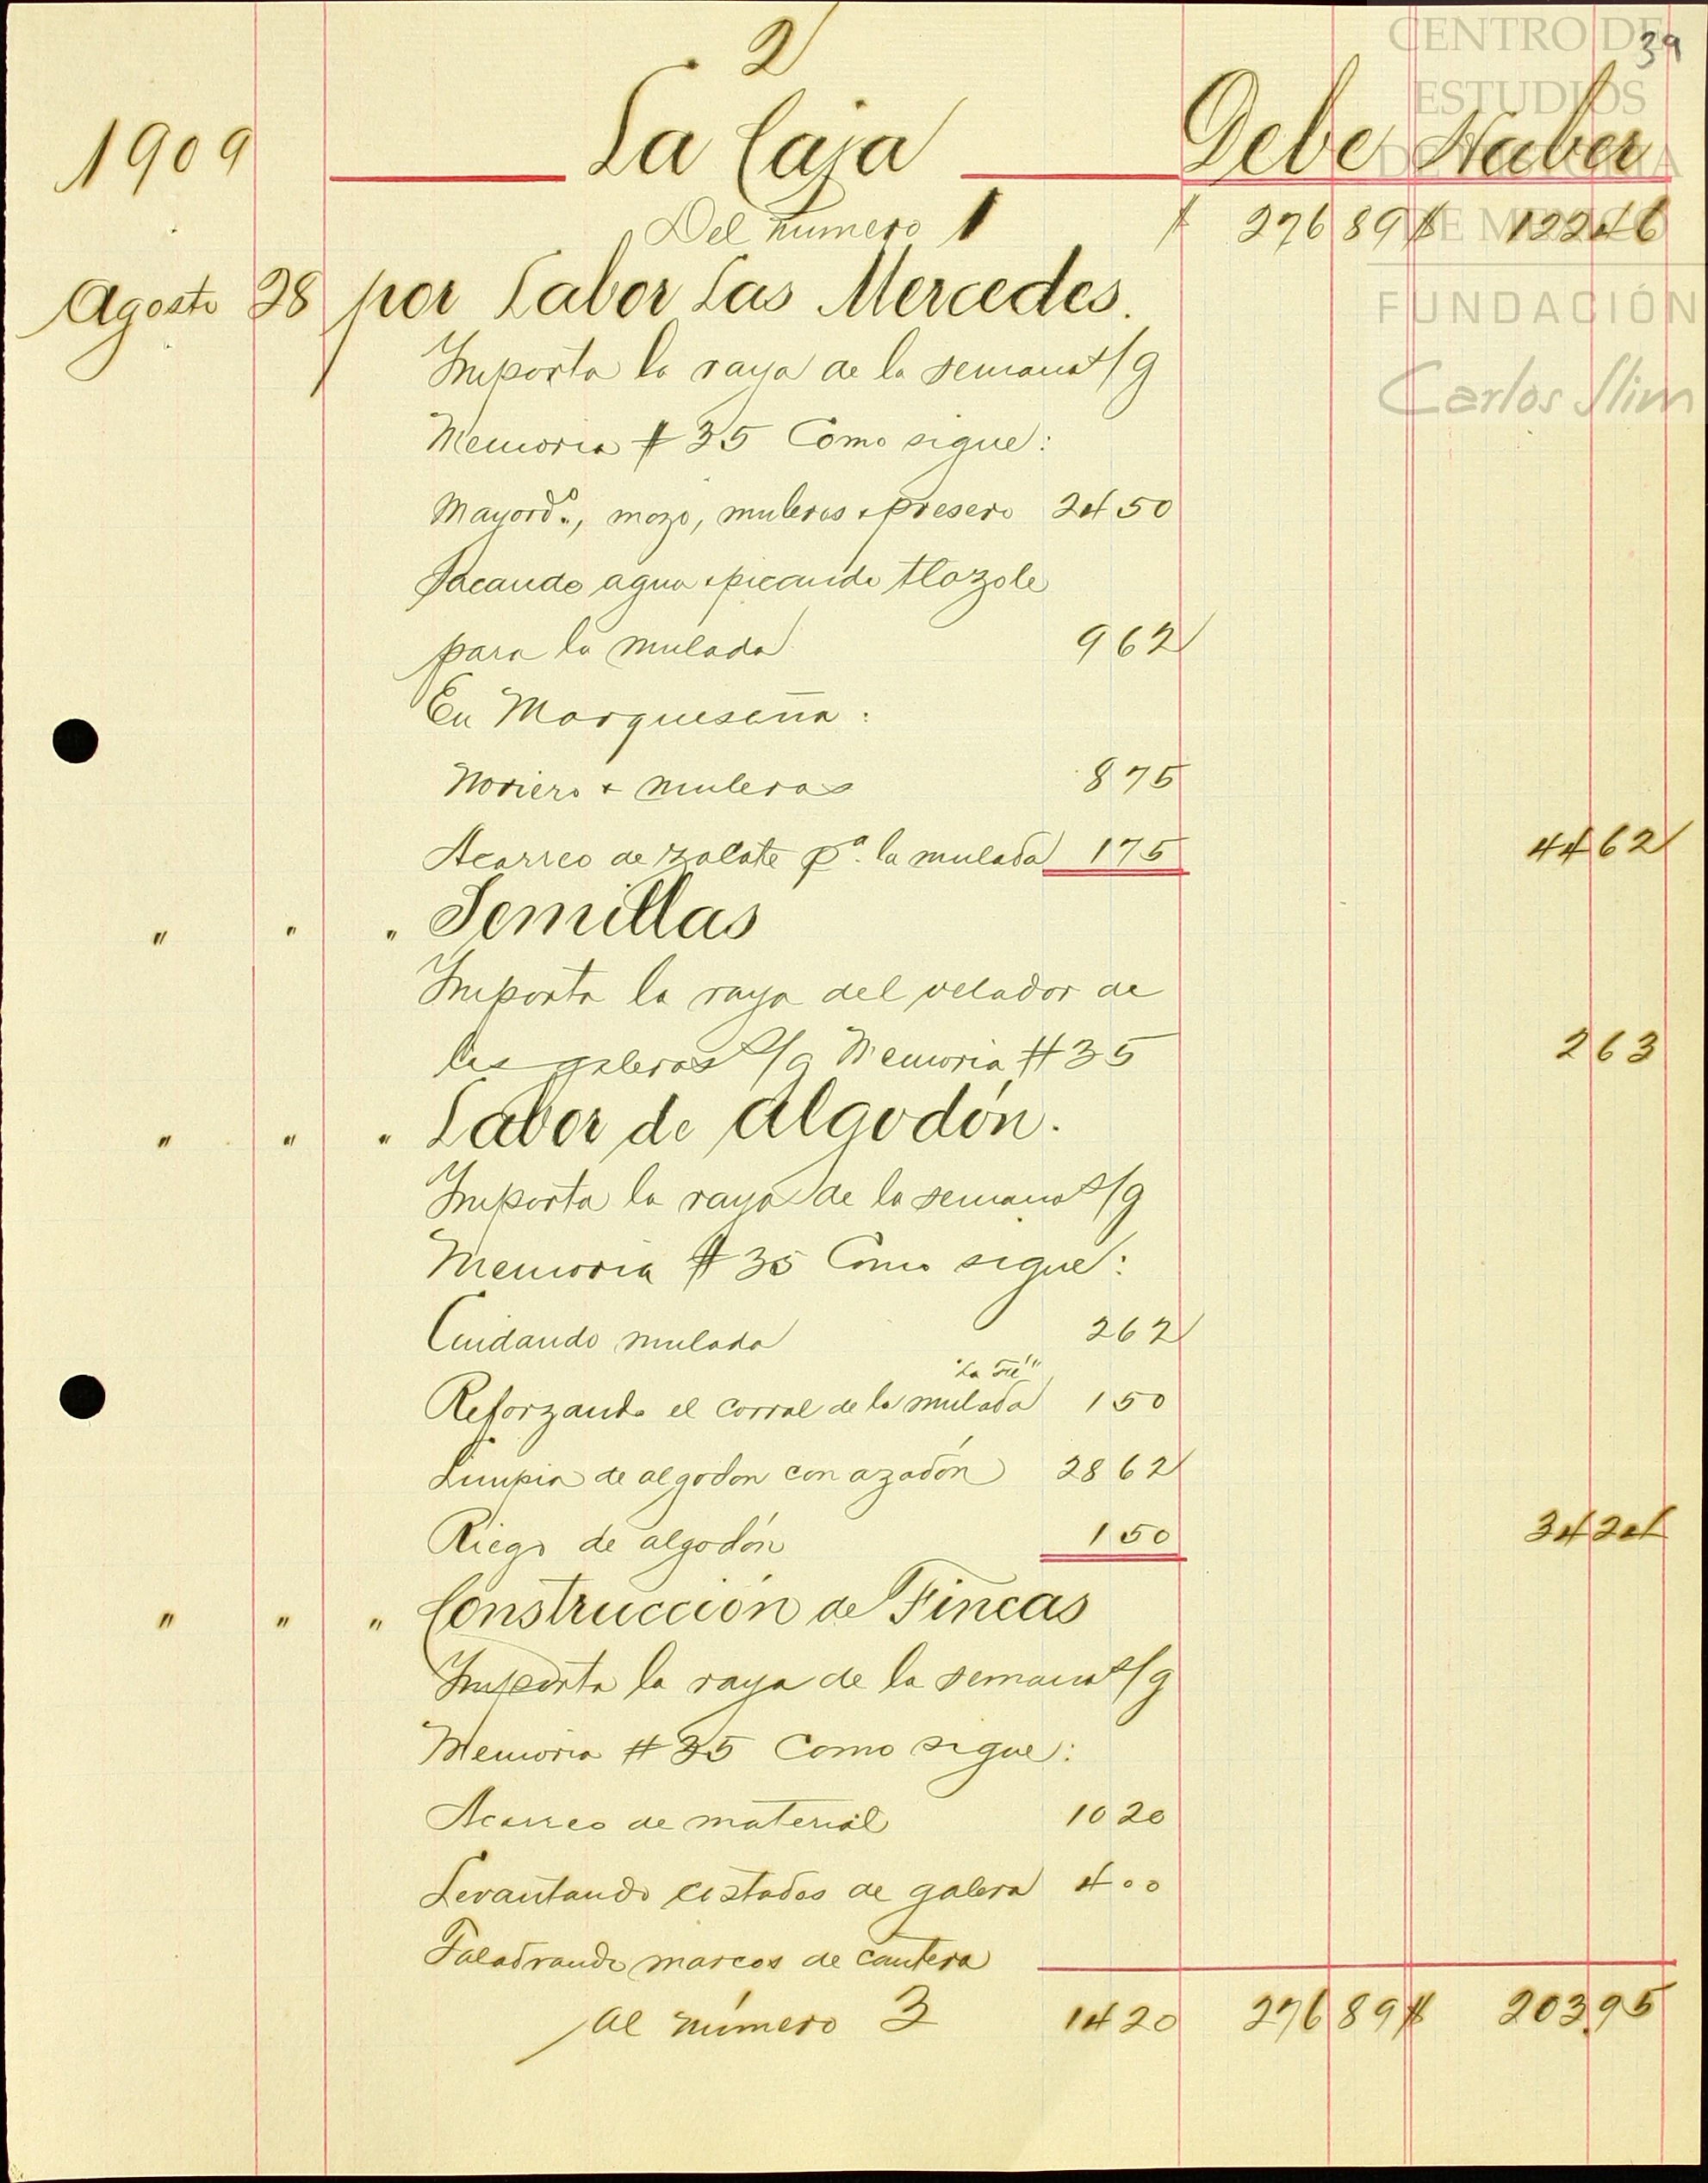 2
39
CENTRO DE
ESTUDIOS
DE HISTORIA
DE MEXICO
FUNDACIÓN
Carlos Slim
1909 La Caja Debe Haber
Del numero 1 $ 276 89 $ 122 46
Agosto 28 por Labor Las Mercedes.
Importa la raya de la semana s/g
Memoria # 35 Como sigue:
Mayord.º, mozo, muleros + presero 24 50
Sacando agua + picando tlazole
para la mulada 9 62
En Marqueseña:
Noriero + muleros 8 75
Acarreo de zacate pª. la mulada 1 75 44 62
" " " Semillas
Importa la raya del velador de
las galeras s/g Memoria # 35 2 63
" " " Labor de Algodón.
Importa la raya de la semana s/g
Memoria # 35 Como sigue:
Cuidando mulada 2 62
"La Fé"
Reforzando el corral de la mulada 1 50
Limpia de algodon con azadón 28 62
Riego de algodón 1 50 34 24
" " " Construcción de Fincas
Importa la raya de la semana s/g
Memoria # 35 Como sigue:
Acarreo de material 10 20
Levantando costados de galera 4 00
Taladrando marcos de cantera
Al número 3 14 20 276 89 $ 203.95